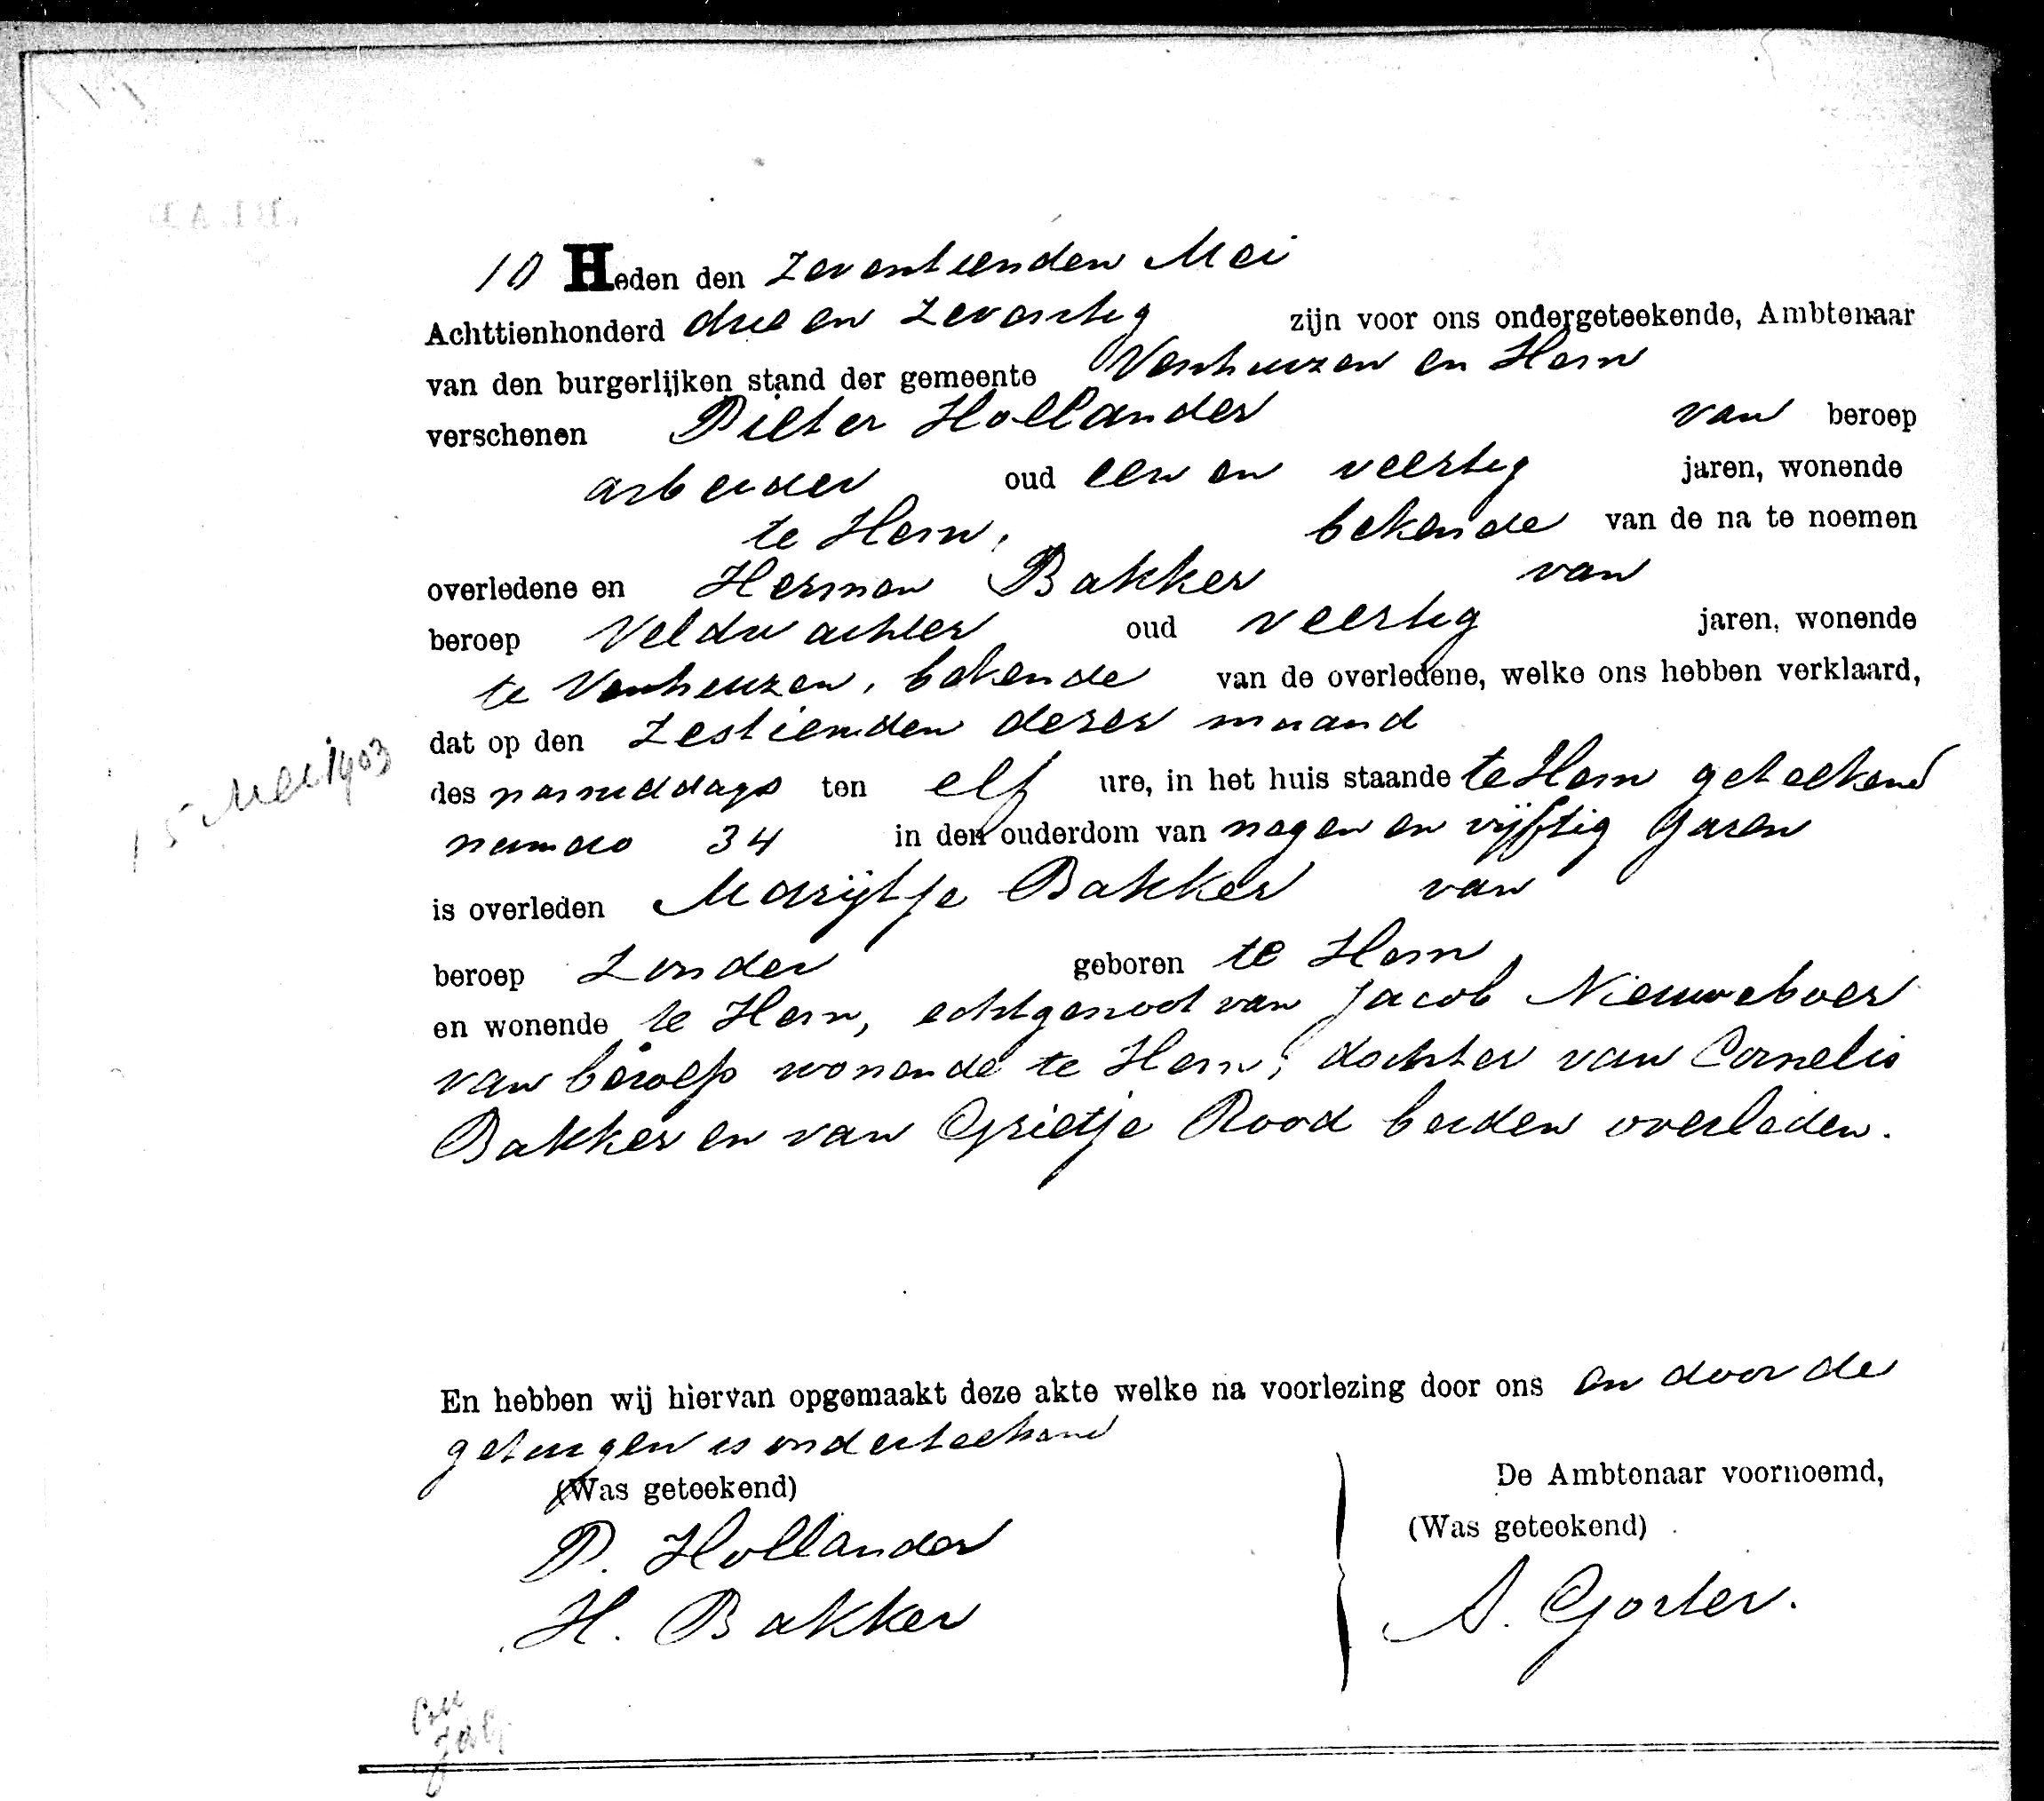 10 Heden den zeventienden Mei
Achttienhonderd drie en zeventig zijn voor ons ondergeteekende, Ambtenaar
van den burgerlijken stand der gemeente Venhuizen en Hem
verschenen Pieter Hollander van beroep
arbeider oud een en veertig jaren, wonende
te Hem, bekende van de na te noemen
overledene en Herman Bakker van
beroep Veldwachter oud veertig jaren, wonende
te Venhuizen, bekende van de overledene, welke ons hebben verklaard,
dat op den zestienden dezer maand
15 Mei 1903
des namiddags ten elf ure, in het huis staande te Hem geteekend
numero 34 in den ouderdom van negen en vijftig jaren
is overleden Marijtje Bakker van
beroep zonder geboren te Hem
en wonende te Hem, echtgenoot van Jacob Nieuweboer
van beroep wonende te Hem, dochter van Cornelis
Bakker en van Grietje Rood beiden overleden.
En hebben wij hiervan opgemaakt deze akte welke na voorlezing door ons en door de
getuigen is onderteekend
(Was geteekend) De Ambtenaar voornoemd,
(Was geteekend)
P. Hollander
H. Bakker A. Gorter.